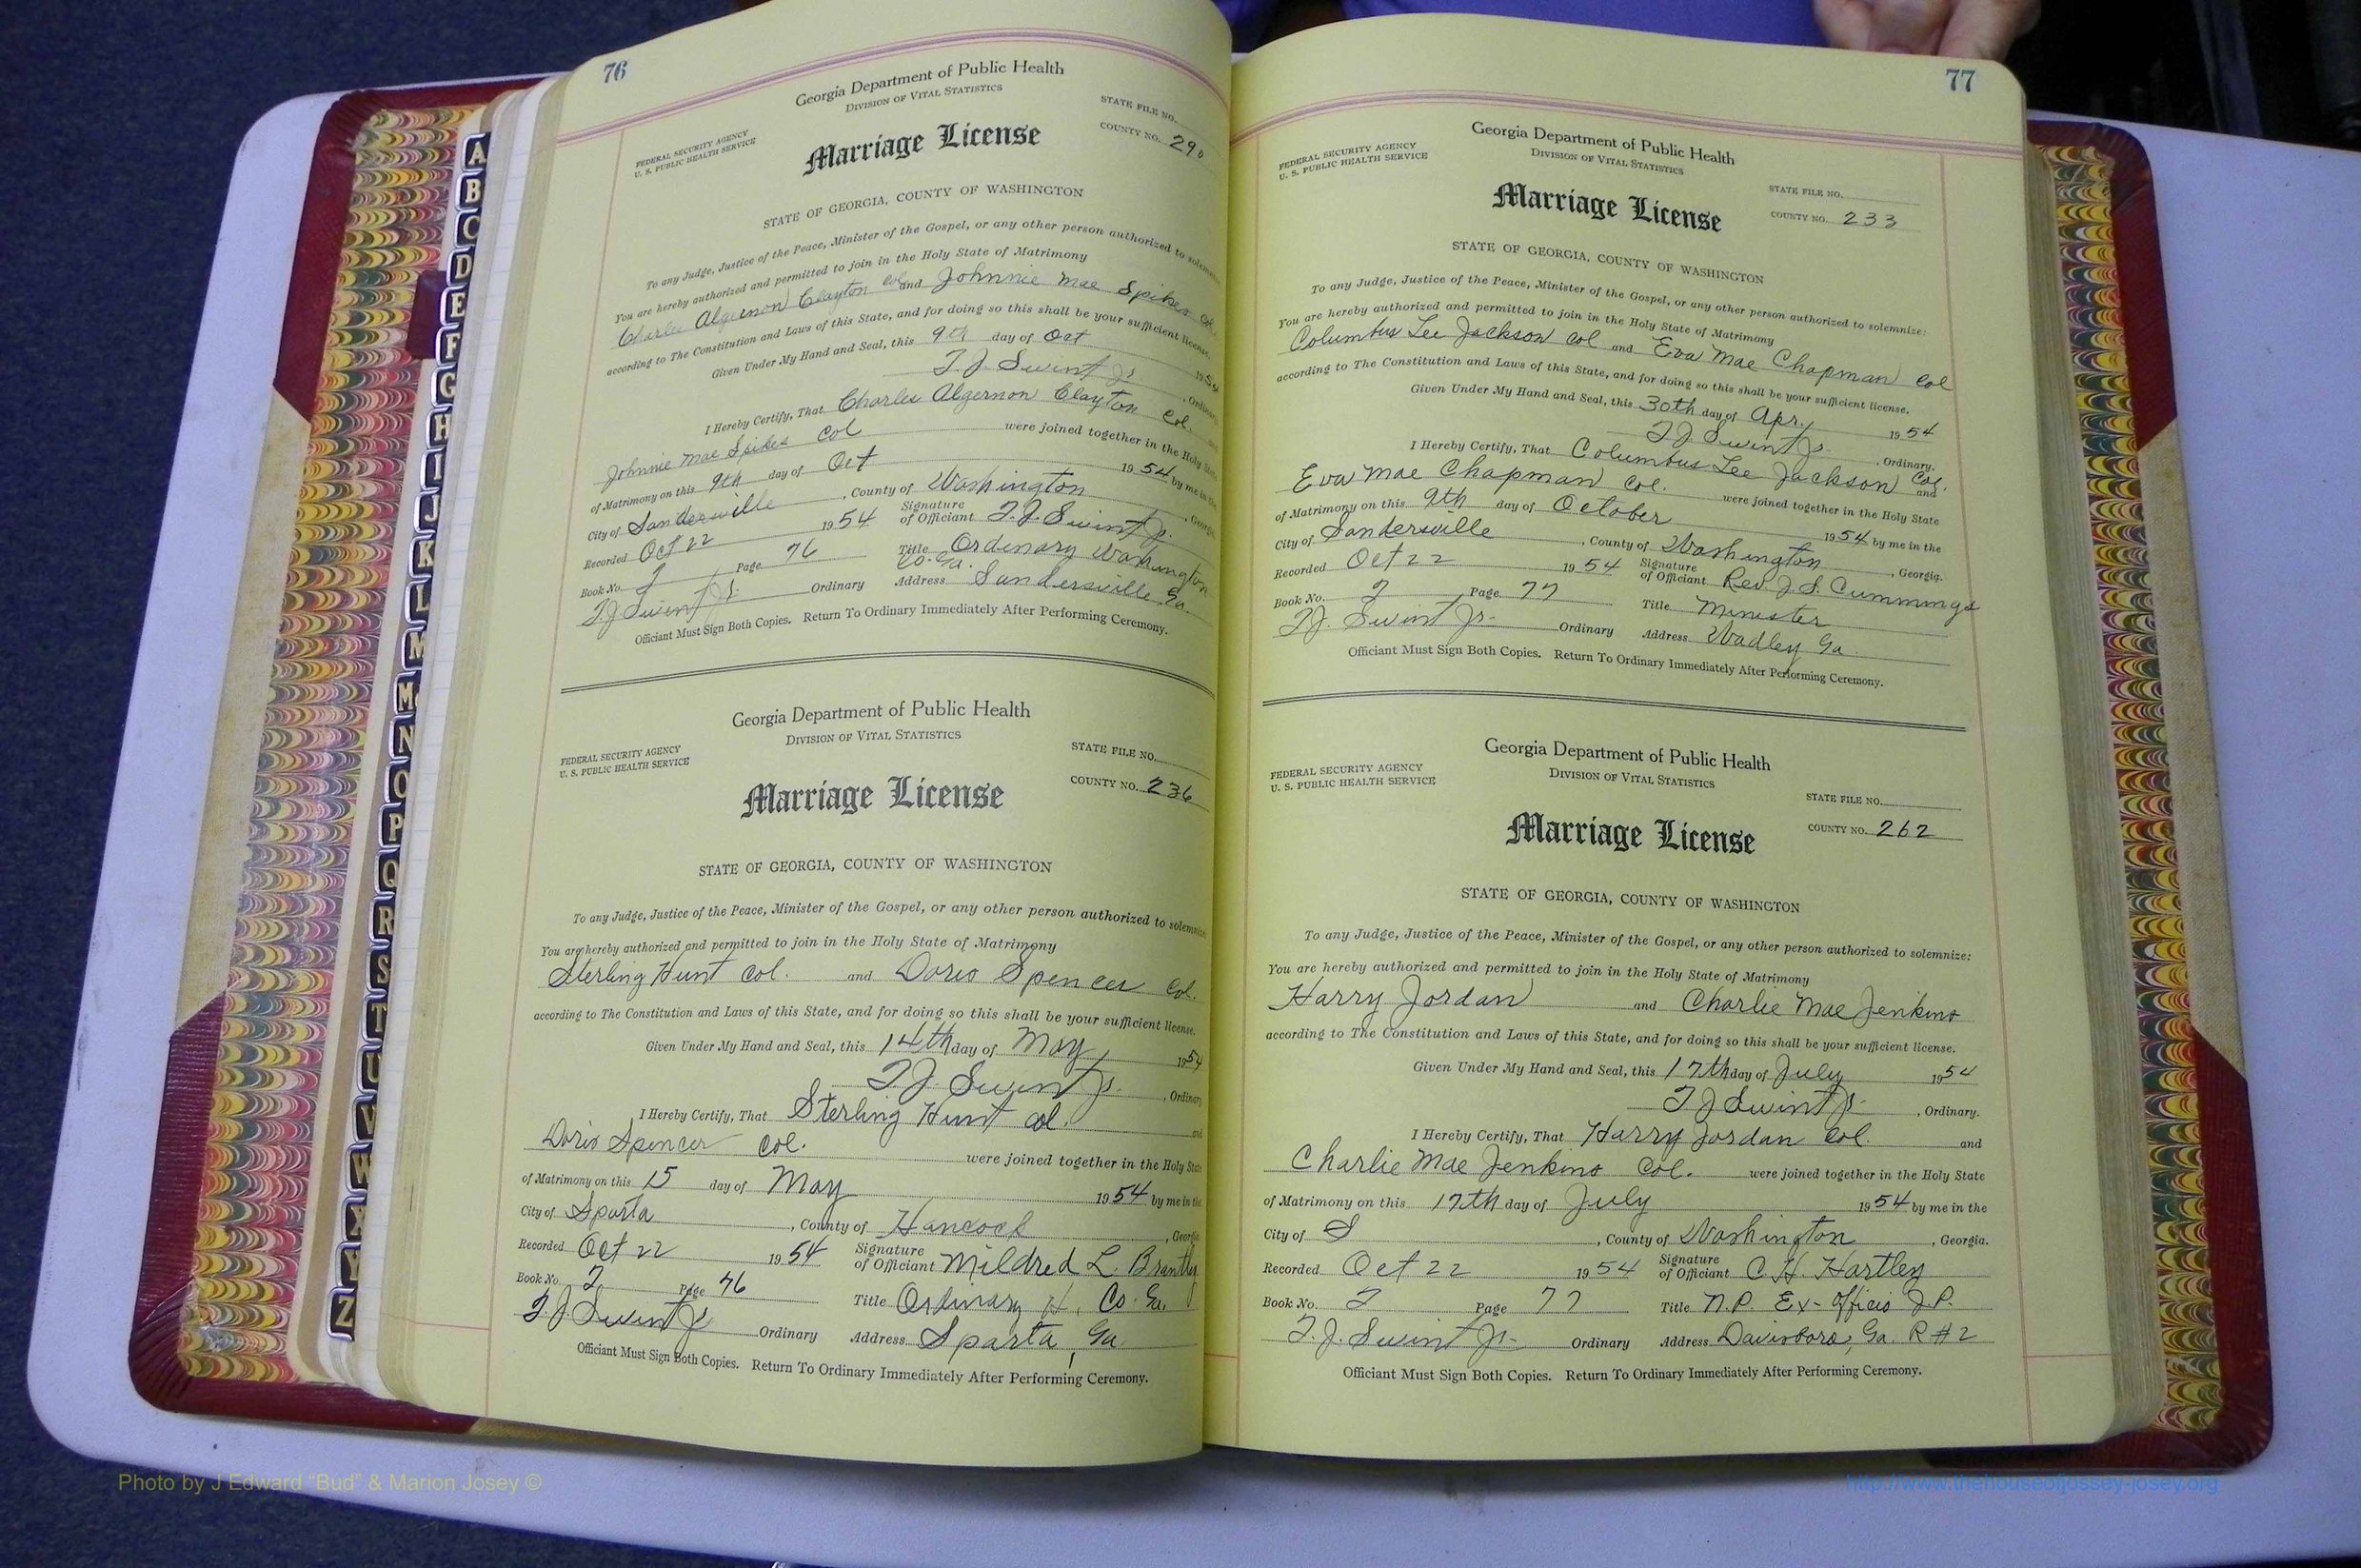 76
Georgia Department of Public Health
DIVISION OF VITAL STATISTICS
STATE FILE NO.
FEDERAL SECURITY AGENCY
U. S. PUBLIC HEALTH SERVICE
COUNTY NO. 290
Marriage License
STATE OF GEORGIA, COUNTY OF WASHINGTON
To any Judge, Justice of the Peace, Minister of the Gospel, or any other person authorized to solemnize
You are hereby authorized and permitted to join in the Holy State of Matrimony
Charles Algernon Clayton col and Johnnie Mae Spikes Col.
according to The Constitution and Laws of this State, and for doing so this shall be your sufficient license.
Given Under My Hand and Seal, this 9th day of Oct 1954
T. J. Swint Jr. , Ordinary
I Hereby Certify, That Charles Algernon Clayton Col. and
Johnnie Mae Spikes Col were joined together in the Holy State
of Matrimony on this 9th day of Oct 1954 by me in the
City of Sandersville , County of Washington , Georgia.
Recorded Oct 22 1954 Signature of Officiant T. J. Swint Jr.
Book No. Page 76 Title Ordinary Washington Co. Ga.
T. J. Swint Jr. Ordinary Address Sandersville, Ga.
Officiant Must Sign Both Copies. Return To Ordinary Immediately After Performing Ceremony.
Georgia Department of Public Health
DIVISION OF VITAL STATISTICS
FEDERAL SECURITY AGENCY
U. S. PUBLIC HEALTH SERVICE
STATE FILE NO.
COUNTY NO. 236
Marriage License
STATE OF GEORGIA, COUNTY OF WASHINGTON
To any Judge, Justice of the Peace, Minister of the Gospel, or any other person authorized to solemnize
You are hereby authorized and permitted to join in the Holy State of Matrimony
Sterling Hunt Col. and Doris Spencer Col.
according to The Constitution and Laws of this State, and for doing so this shall be your sufficient license.
Given Under My Hand and Seal, this 14th day of May, 1954
T. J. Swint Jr. , Ordinary
I Hereby Certify, That Sterling Hunt Col. and
Doris Spencer Col. were joined together in the Holy State
of Matrimony on this 15 day of May 1954 by me in the
City of Sparta , County of Hancock , Georgia
Recorded Oct 22 1954 Signature of Officiant Mildred L. Brantley
Book No. Page 76 Title Ordinary H. Co. Ga.
T. J. Swint Jr Ordinary Address Sparta, Ga
Officiant Must Sign Both Copies. Return To Ordinary Immediately After Performing Ceremony.
77
Georgia Department of Public Health
DIVISION OF VITAL STATISTICS
FEDERAL SECURITY AGENCY
U. S. PUBLIC HEALTH SERVICE
STATE FILE NO.
COUNTY NO. 233
Marriage License
STATE OF GEORGIA, COUNTY OF WASHINGTON
To any Judge, Justice of the Peace, Minister of the Gospel, or any other person authorized to solemnize:
You are hereby authorized and permitted to join in the Holy State of Matrimony
Columbus Lee Jackson Col and Eva Mae Chapman Col
according to The Constitution and Laws of this State, and for doing so this shall be your sufficient license.
Given Under My Hand and Seal, this 30th day of Apr., 1954
T J Swint Jr. , Ordinary.
I Hereby Certify, That Columbus Lee Jackson Col. and
Eva Mae Chapman Col. were joined together in the Holy State
of Matrimony on this 9th day of October 1954 by me in the
City of Sandersville , County of Washington , Georgia.
Recorded Oct 22 1954 Signature of Officiant Rev. J. S. Cummings
Book No. Page 77 Title Minister
T. J. Swint Jr. Ordinary Address Wadley Ga
Officiant Must Sign Both Copies. Return To Ordinary Immediately After Performing Ceremony.
Georgia Department of Public Health
DIVISION OF VITAL STATISTICS
FEDERAL SECURITY AGENCY
U. S. PUBLIC HEALTH SERVICE
STATE FILE NO.
COUNTY NO. 262
Marriage License
STATE OF GEORGIA, COUNTY OF WASHINGTON
To any Judge, Justice of the Peace, Minister of the Gospel, or any other person authorized to solemnize:
You are hereby authorized and permitted to join in the Holy State of Matrimony
Harry Jordan and Charlie Mae Jenkins
according to The Constitution and Laws of this State, and for doing so this shall be your sufficient license.
Given Under My Hand and Seal, this 17th day of July 1954
T J Swint Jr. , Ordinary.
I Hereby Certify, That Harry Jordan Col. and
Charlie Mae Jenkins Col. were joined together in the Holy State
of Matrimony on this 17th day of July 1954 by me in the
City of S , County of Washington , Georgia.
Recorded Oct 22 1954 Signature of Officiant C. H. Hartley
Book No. Page 77 Title N.P. Ex-Officio J.P.
T. J. Swint Jr. Ordinary Address Davisboro, Ga. R #2
Officiant Must Sign Both Copies. Return To Ordinary Immediately After Performing Ceremony.
A
B
C
D
E
F
G
H
I
J
K
L
M
Mc
N
O
P
Q
R
S
T
U
V
W
X
Y
Z
Photo by J Edward “Bud” & Marion Josey ©
http://www.thehouseofjossey-josey.org